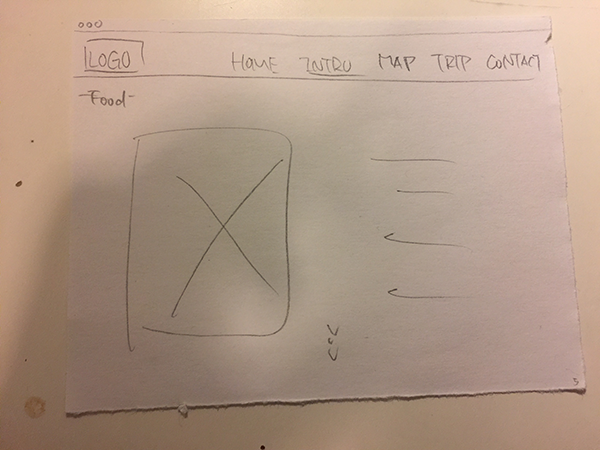 LOGO HOME INTRO MAP TRIP CONTACT
-Food-
3